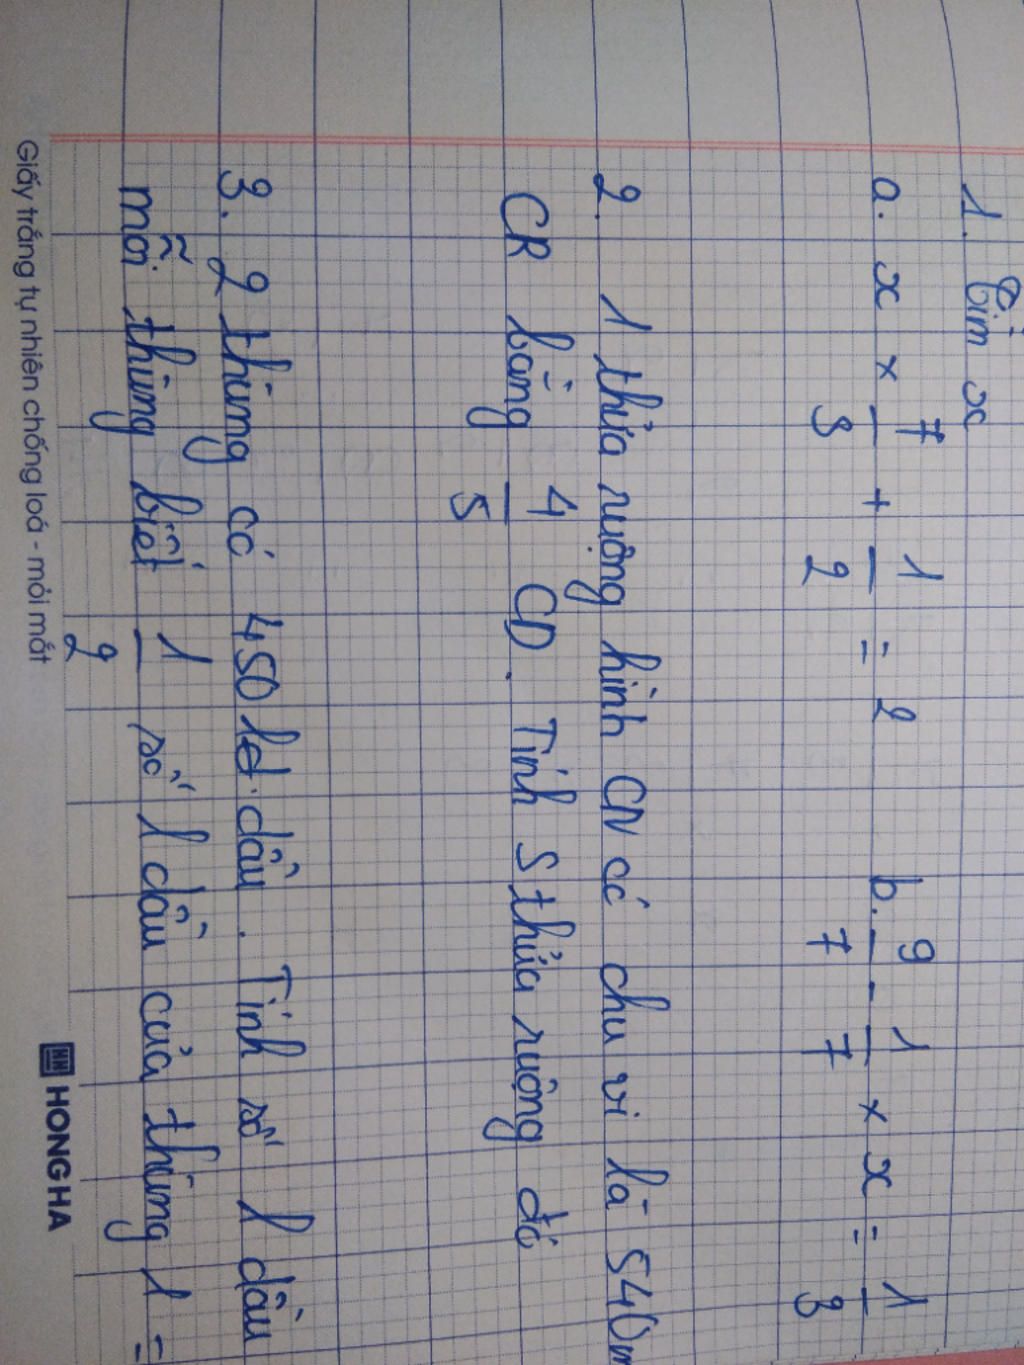 1. Tìm x
a. x × 7/3 + 1/2 = 2 b. 9/7 - 1/7 × x = 1/3
2. 1 thửa ruộng hình CN có chu vi là 540m
CR bằng 4/5 CD. Tính S thửa ruộng đó
3. 2 thùng có 450 l dầu. Tính số l dầu
mỗi thùng biết 1/2 số l dầu của thùng 1 =
Giấy trắng tự nhiên chống loá - mỏi mắt
HH HONG HA